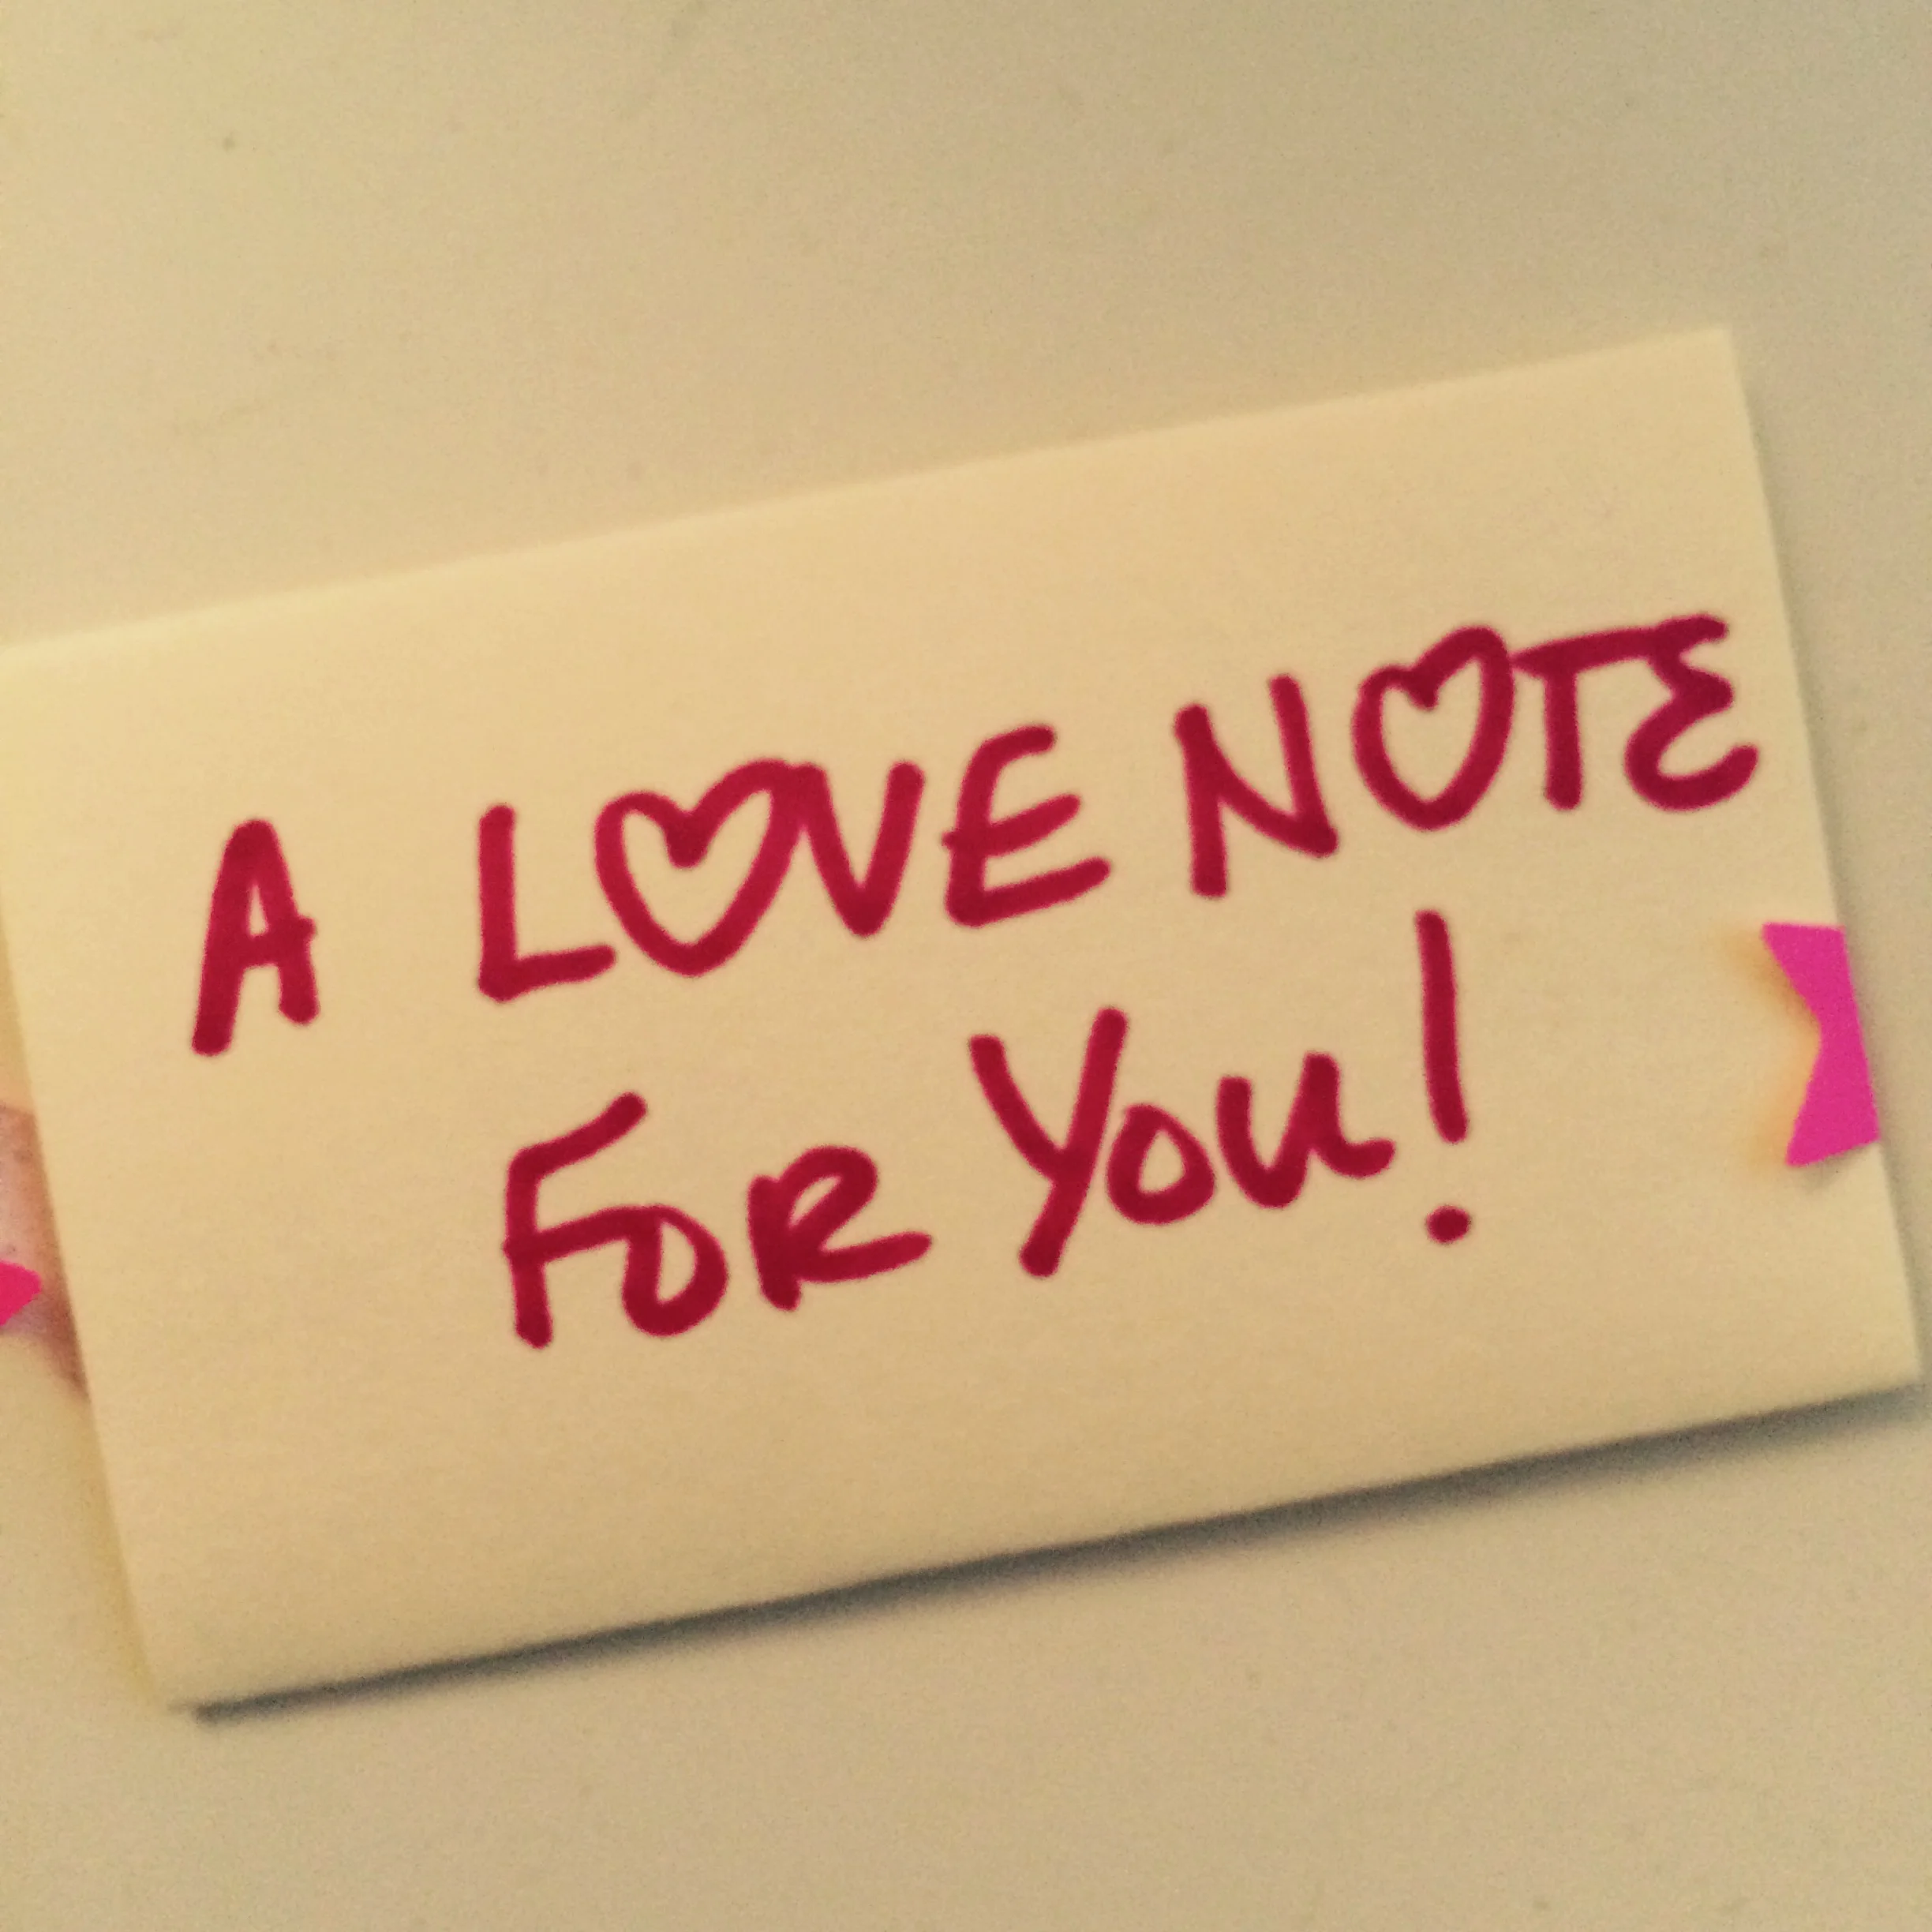 A LOVE NOTE
FOR YOU!